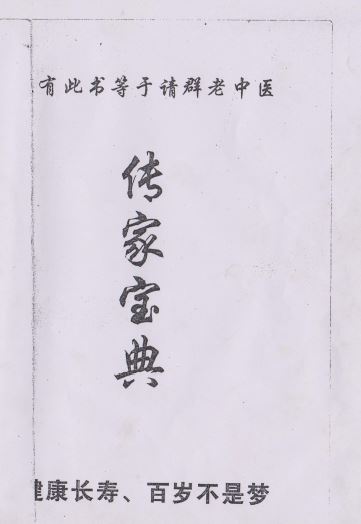 有此书等于请群老中医
传家宝典
健康长寿、百岁不是梦